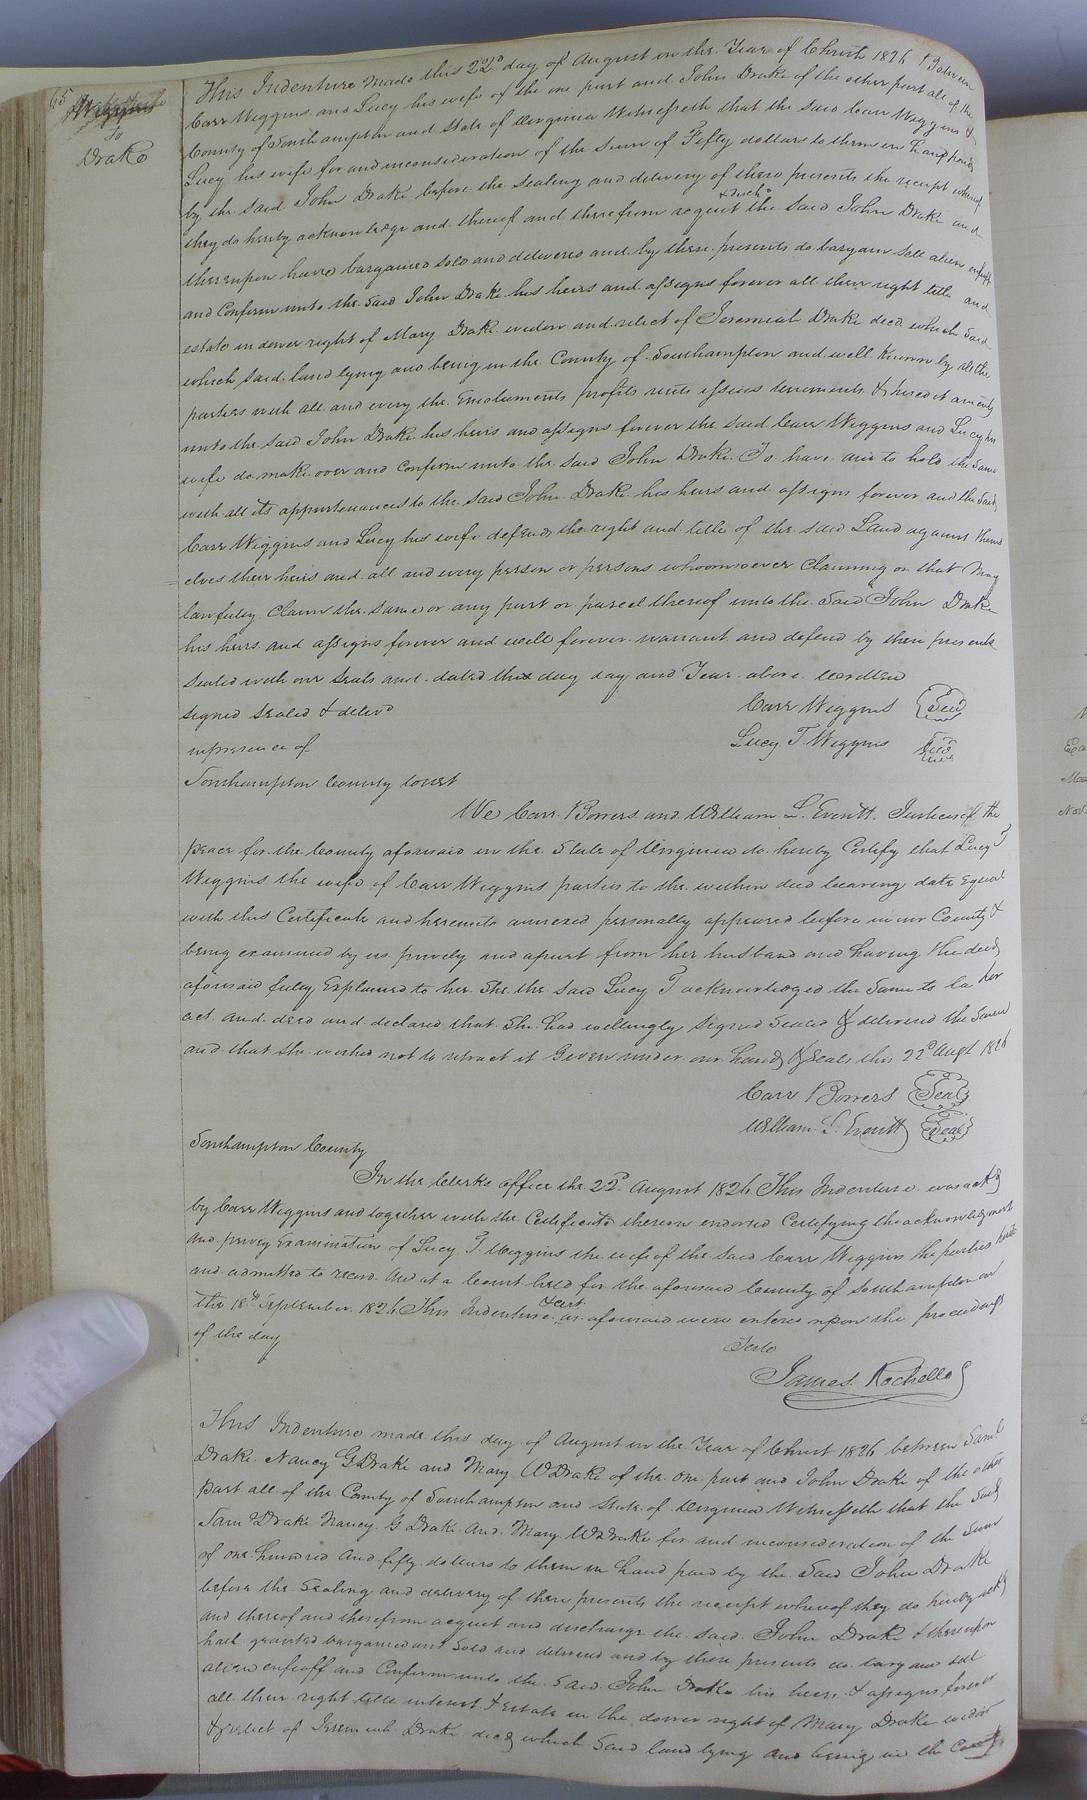 65
Wiggins
to
Drake
This Indenture made this 22d day of August in the Year of Christ 1826 Between
Carr Wiggins and Lucy his wife of the one part and John Drake of the other part all of the
County of Southampton and State of Virginia Witnesseth that the said Carr Wiggins &
Lucy his wife for and inconsideration of the sum of Fifty dollars to them in hand paid
by the said John Drake before the sealing and delivery of these presents the receipt whereof
they do hereby acknowledge and thereof and therefrom acquit & disch the said John Drake and
thereupon have bargained sold and delivered and by these presents do bargain sell alien enfeoff
and Confirm unto the said John Drake his heirs and assigns forever all their right title and
estate in dower right of Mary Drake widow and relict of Jeremiah Drake decd which said
which said land lying and being in the County of Southampton and well known by all the
parties with all and every the Emoluments profits rents issues tenements & hereditaments
unto the said John Drake his heirs and assigns forever the said Carr Wiggins and Lucy his
wife do make over and Confirm unto the said John Drake. To have and to hold the same
with all its appurtenances to the said John Drake his heirs and assigns forever and the said
Carr Wiggins and Lucy his wife defend the right and title of the said Land against them
elves their heirs and all and every person or persons whoomsoever Claiming or that may
lawfuley Claim the same or any part or parcel thereof unto the said John Drake
his heirs and assigns forever and will forever warrant and defend by these presents
Sealed with our Seals and dated the day and Year above written
Signed Sealed & delivd
in presence of
Carr Wiggins Seal
Lucy T. Wiggins Seal
Southampton County Court
We Carr Bowers and William L. Everitt Justices of the
peace for the County aforesaid in the State of Virginia do hereby Certify that Lucy T
Wiggins the wife of Carr Wiggins parties to the within deed bearing date Equal
with this Certificate and hereunto annexed personally appeared before in our County &
being examined by us privily and apart from her husband and having the deed
aforesaid fuley Explained to her She the said Lucy T acknowledged the same to be her
act and deed and declared that She had willingly signed Sealed & delivered the same
and that she wished not to retract it Given under our hands & Seals this 22d Augt 1826
Carr Bowers Seal
William L. Everitt Seal
Southampton County
In the Clerks office the 22d August 1826 This Indenture was ackd
by Carr Wiggins and together with the Certificate thereon endorsed Certifying the acknowledgment
and privey Examination of Lucy T. Wiggins the wife of the said Carr Wiggins the parties hereto
and admitted to record. And at a Court held for the aforesaid County of Southampton on
the 18th September 1826 This Indenture & cert as aforesaid were entered upon the proceedings
of the day
Teste
James Rochelle
This Indenture made this day of August in the Year of Christ 1826 between Saml
Drake Nancy G Drake and Mary W Drake of the one part and John Drake of the other
part all of the County of Southampton and State of Virginia Witnesseth that the said
Saml Drake Nancy G Drake and Mary W Drake for and inconsideration of the sum
of one hundred and fifty dollars to them in hand paid by the said John Drake
before the sealing and delivery of these presents the receipt whereof they do hereby ackd
and thereof and therefrom acquit and discharge the said John Drake & thereupon
hath granted bargained and sold and delivered and by these presents do bargain sell
alien enfeoff and Confirm unto the said John Drake his heirs & assigns forever
all their right title interest & Estate in the dower right of Mary Drake widow
& relict of Jeremiah Drake decd which said land lying and being in the County